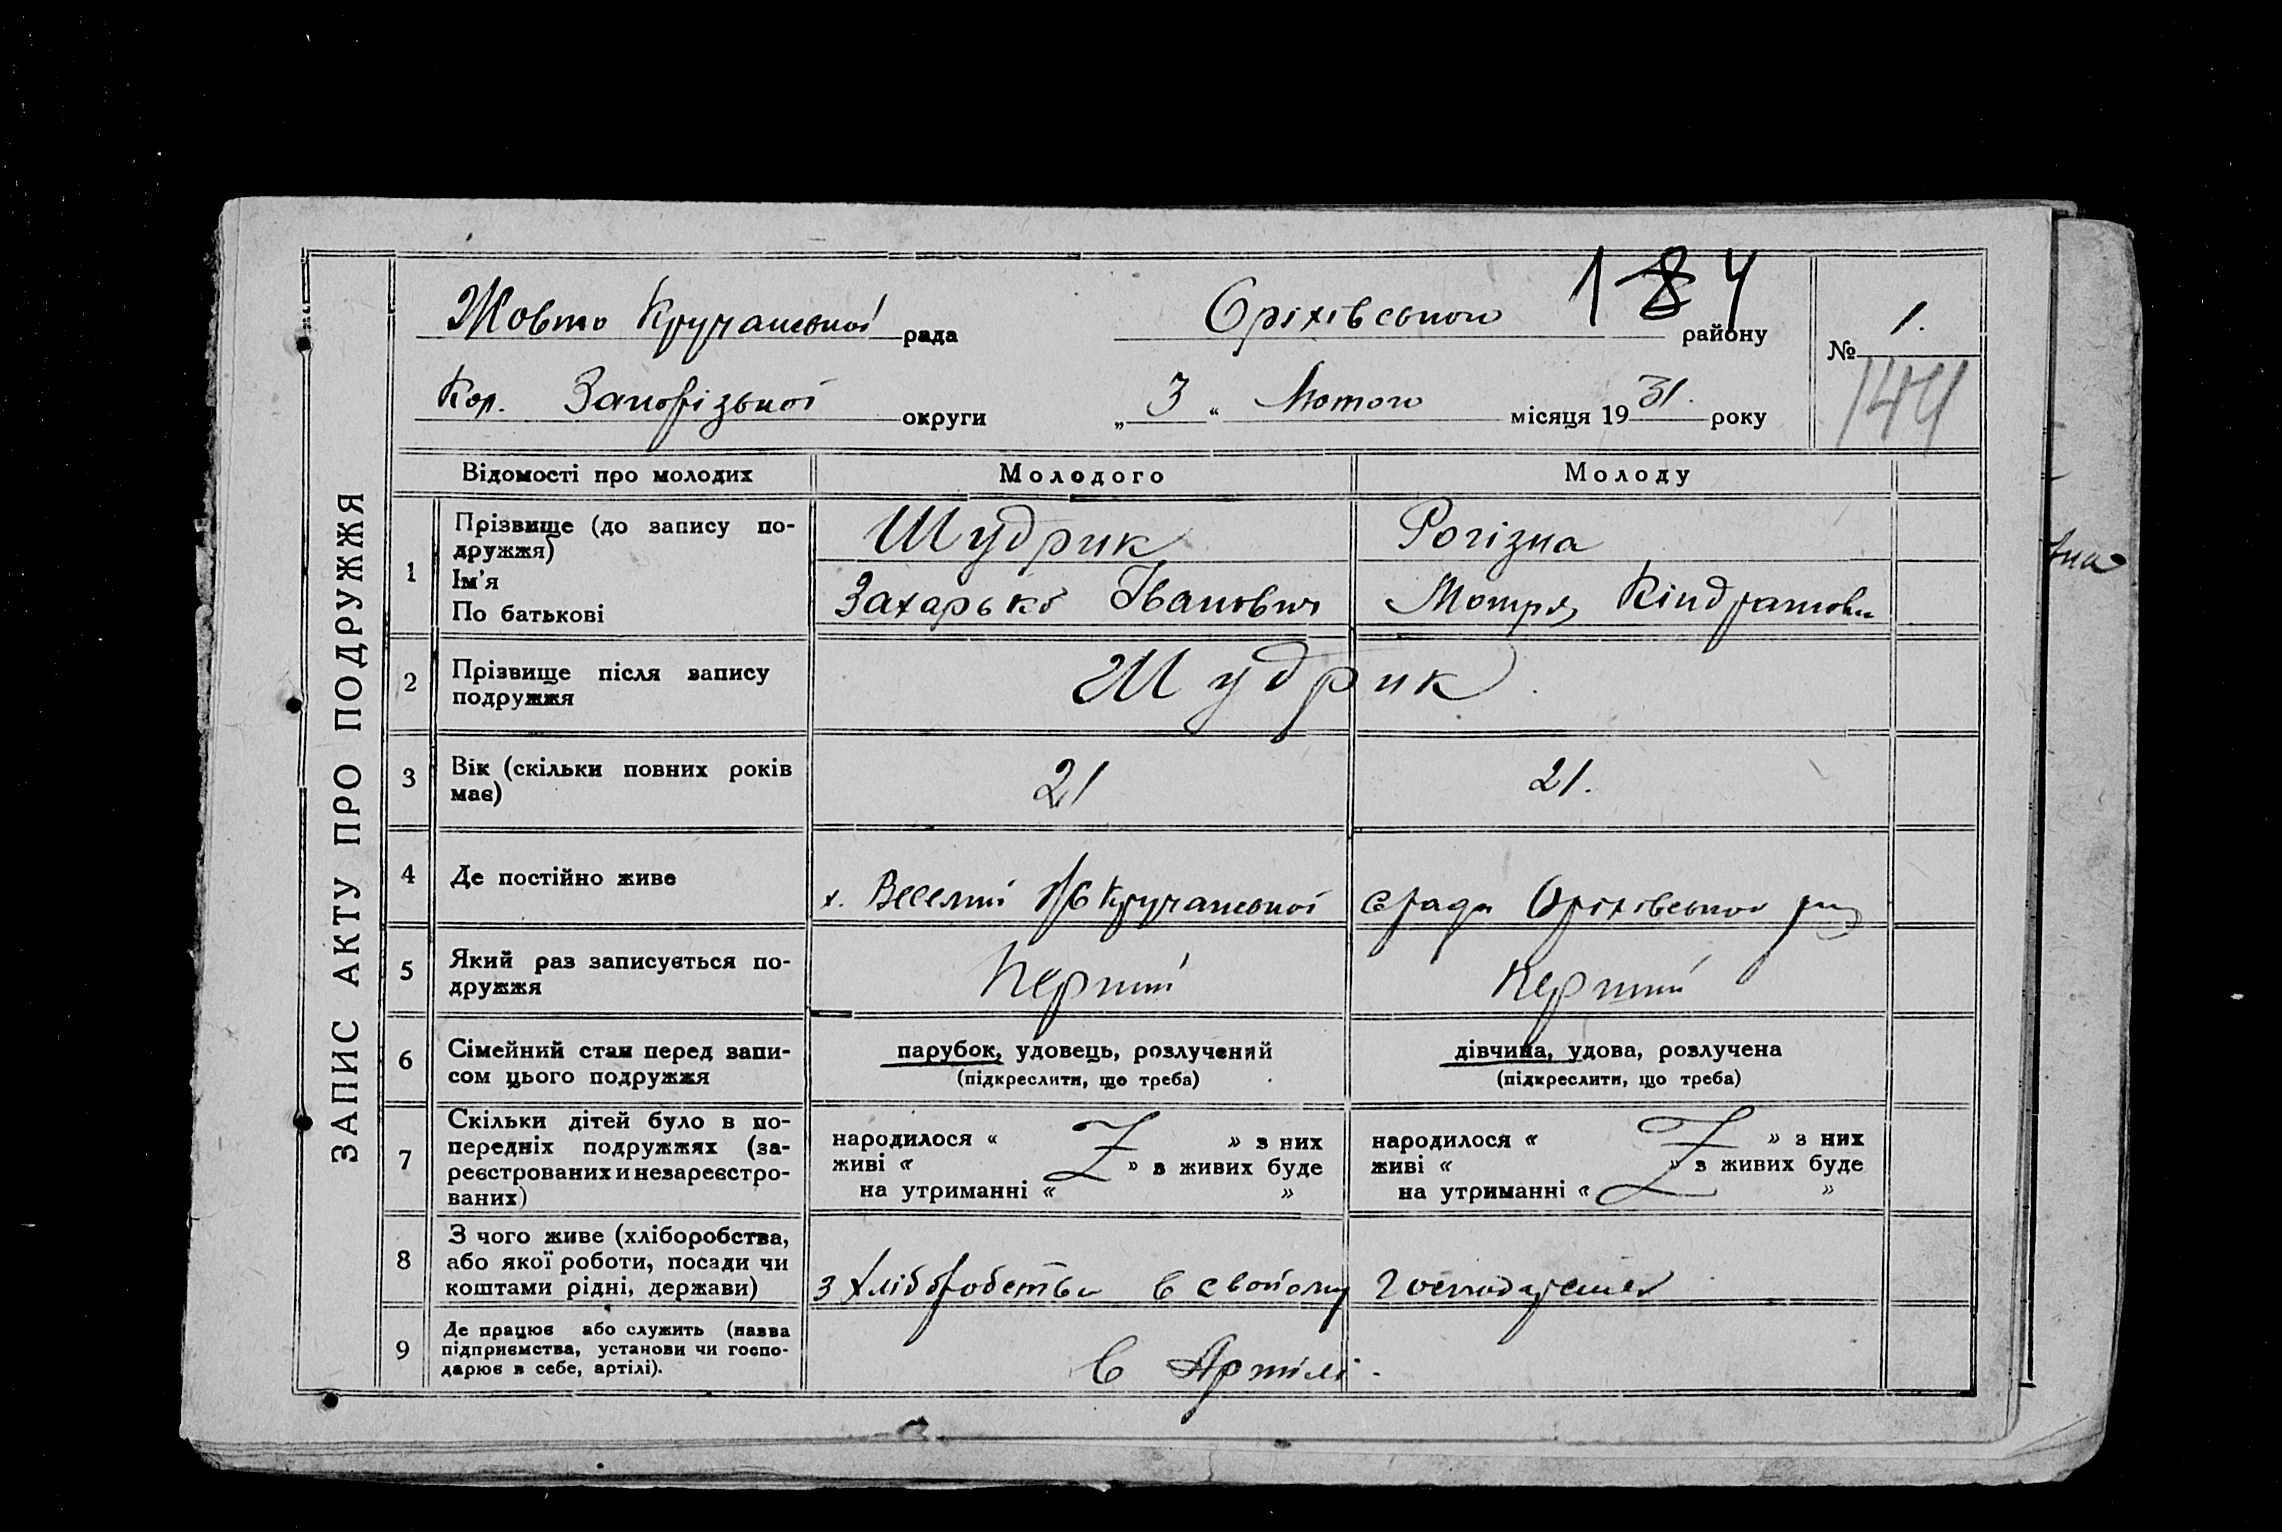 ЗАПИС АКТУ ПРО ПОДРУЖЖЯ
184
Жовто Кручанської рада Оріхівського району № 1.
144
Кол. Запорізької округи „ 3 “ Лютого місяця 1931. року
Відомості про молодих Молодого Молоду
1 Прізвище (до запису по-
дружжя) Шудрик Рогізна
Ім'я
По батькові Захарько Іванович Мотря Кіндратовн
2 Прізвище після запису
подружжя Шудрик
3 Вік (скільки повних років
має) 21 21.
4 Де постійно живе х. Веселий Кручанської с ради Оріхівського
5 Який раз записується по-
дружжя Перший Перший
6 Сімейний стан перед запи-
сом цього подружжя
парубок, удовець, розлучений
(підкреслити, що треба)
дівчина, удова, розлучена
(підкреслити, що треба)
7 Скільки дітей було в по-
передніх подружжях (за-
реєстрованих и незареєстро-
ваних)
народилося « Z » з них
живі « » з живих буде
на утриманні « »
народилося « Z » з них
живі « » з живих буде
на утриманні « »
8 З чого живе (хліборобства,
або якої роботи, посади чи
коштами рідні, держави)
з хліборобства в свойому
9 Де працює або служить (назва
підприємства, установи чи госпо-
дарює в себе, артілі).
в Артілі.